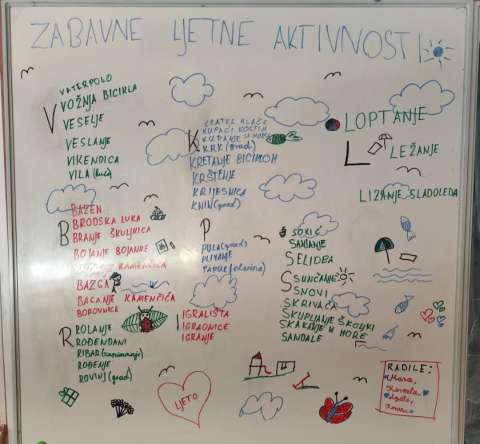 ZABAVNE LJETNE AKTIVNOSTI
V
VATERPOLO
VOŽNJA BICIKLA
VESELJE
VESLANJE
VIKENDICA
VILA (kuća)
B
BAZEN
BRODSKA LUKA
BRANJE ŠKOLJKICA
BOJANJE BOJANKE
KAMENČIĆA
BAZGA
BACANJE KAMENČIĆA
BOROVNICE
R
ROLANJE
ROĐENDANI
RIBAR (zanimanje)
ROĐENJE
ROVINJ (grad)
K
KRATKE HLAČE
KUPAĆI KOSTIM
KUPANJE U MORU
KRK (grad)
KRETANJE BICIKLOM
KRŠTENJE
KRIJESNICA
KNIN (grad)
P
PULA (grad)
PLIVANJE
PAPUK (planina)
I
IGRALIŠTA
IGRAONICE
IGRANJE
L
LOPTANJE
LEŽANJE
LIZANJE SLADOLEDA
S
SOKIĆ
SANJANJE
SELIDBA
SUNČANJE
SNOVI
SKRIVAČA
SKUPLJANJE ŠKOLJKI
SKAKANJE U MORE
SANDALE
LJETO
RADILE:
Mara,